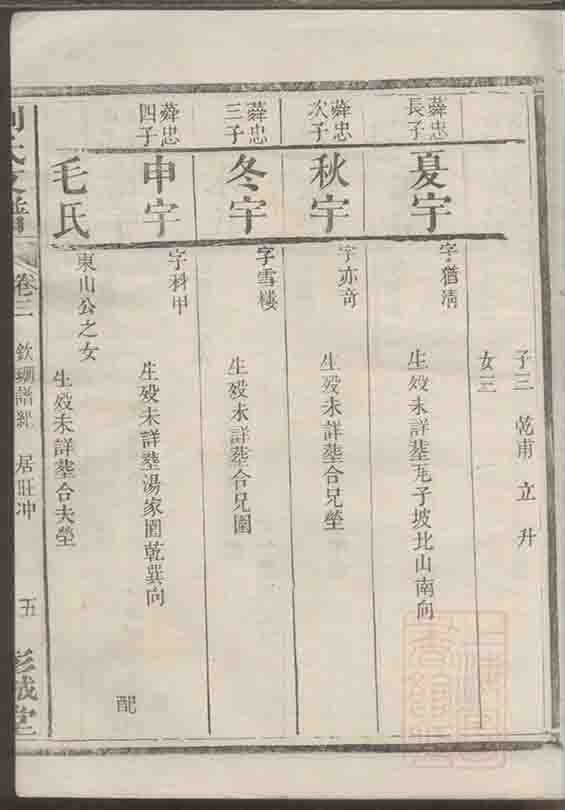 子三 乾甫 立升
女三
蕣忠長子
夏宇
字猶清
生歿未詳塟瓦子坡北山南向
蕣忠次子
秋宇
字亦奇
生歿未詳塟合兄塋
蕣忠三子
冬宇
字雪樓
生歿未詳塟合兄圍
蕣忠四子
申宇
字科甲
生歿未詳塟湯家圍乾巽向
配
毛氏
東山公之女
生歿未詳塟合夫塋
氏支譜
卷三
欽瑚譜紀
居旺冲
五
彭城堂